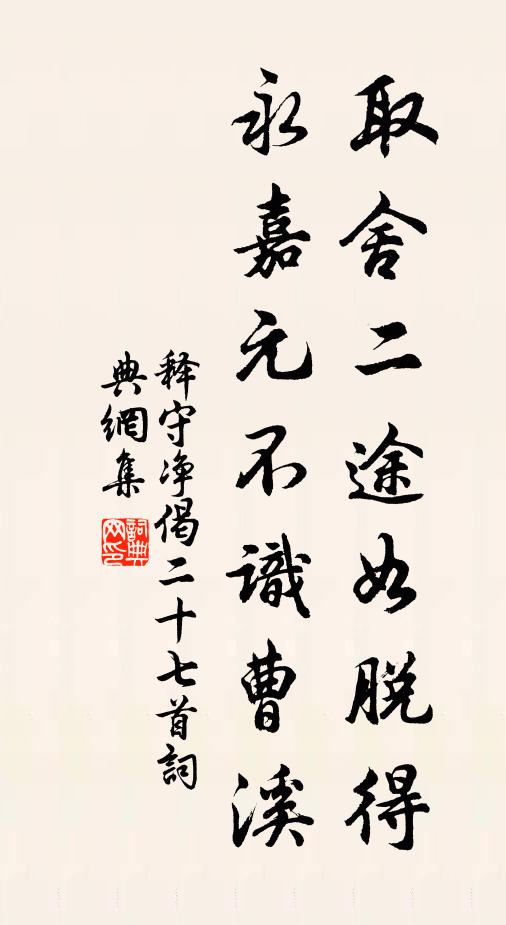 取舍二途如脱得
永嘉元不識曹溪
释守净偈二十七首詞
典網集
詞典網印